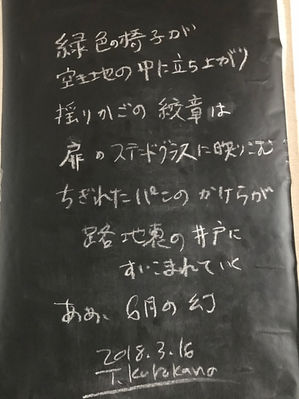 緑色の椅子が
空き地の中に立ち上がり
揺りかごの紋章は
扉のステンドグラスに映りこむ
ちぎれたパンのかけらが
路地裏の井戸に
すいこまれていく
ああ、6月の幻
2018.3.16
T. Kurokano